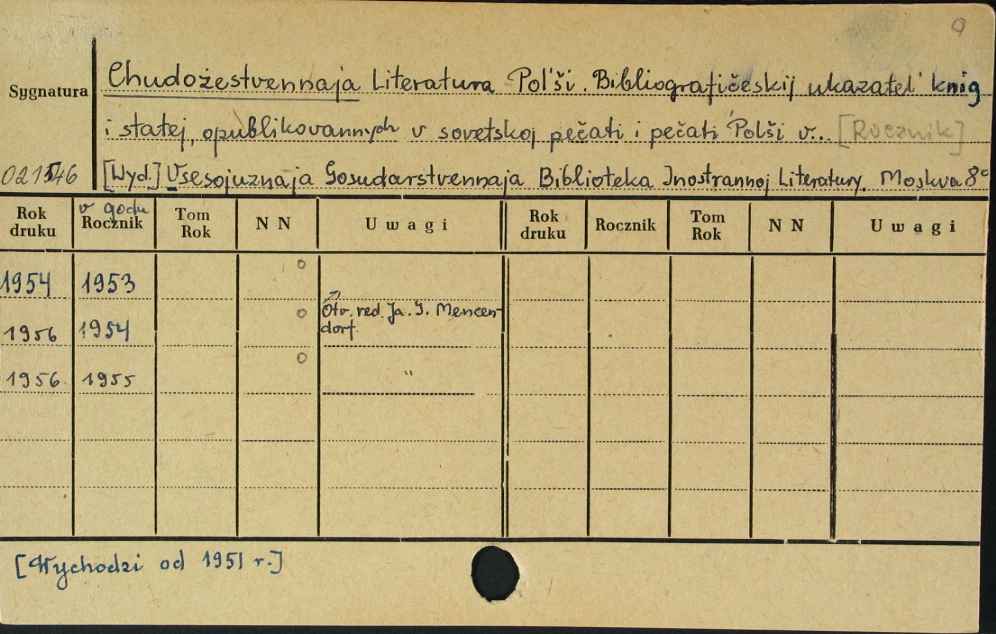 9
Chudožestvennaja Literatura Pol'ši. Bibliografičeskij ukazatel' knig
Sygnatura
i statej, opublikovannych v sovetskoj pečati i pečati Pol'ši v.. [Rocznik]
[Wyd.] Vsesojuznaja Gosudarstvennaja Biblioteka Inostrannoj Literatury. Moskva 8°
Rok druku v godu Rocznik Tom Rok N N Uwagi Rok druku Rocznik Tom Rok N N Uwagi
1954 1953 o
1956 1954 o Otv. red. Ja. G. Mencen-
dorf.
1956 1955 o "
[Wychodzi od 1951 r.]